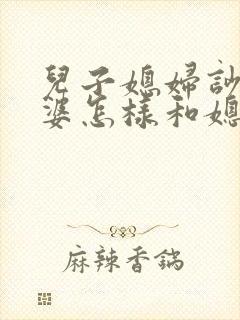 兒子媳婦訟
婆怎樣和媳
麻辣香鍋